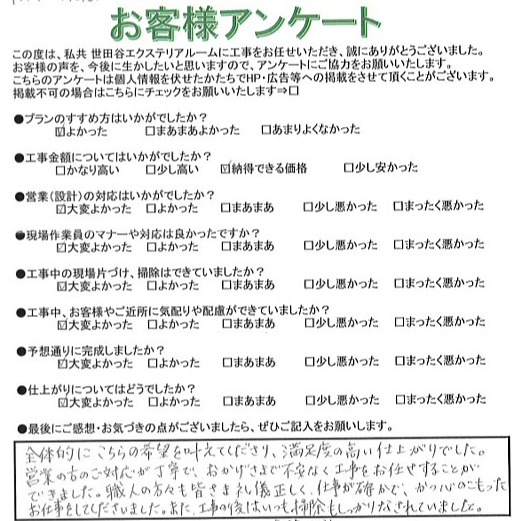 お客様アンケート
この度は、私共 世田谷エクステリアルームに工事をお任せいただき、誠にありがとうございました。
お客様の声を、今後に生かしたいと思いますので、アンケートにご協力をお願いいたします。
こちらのアンケートは個人情報を伏せたかたちでHP・広告等への掲載をさせて頂くことがございます。
掲載不可の場合はこちらにチェックをお願いいたします⇒□
●プランのすすめ方はいかがでしたか？
☑よかった □まあまあよかった □あまりよくなかった
●工事金額についてはいかがでしたか？
□かなり高い □少し高い ☑納得できる価格 □少し安かった
●営業(設計)の対応はいかがでしたか？
☑大変よかった □よかった □まあまあ □少し悪かった □まったく悪かった
●現場作業員のマナーや対応は良かったですか？
☑大変よかった □よかった □まあまあ □少し悪かった □まったく悪かった
●工事中の現場片づけ、掃除はできていましたか？
☑大変よかった □よかった □まあまあ □少し悪かった □まったく悪かった
●工事中、お客様やご近所に気配りや配慮ができていましたか？
☑大変よかった □よかった □まあまあ □少し悪かった □まったく悪かった
●予想通りに完成しましたか？
☑大変よかった □よかった □まあまあ □少し悪かった □まったく悪かった
●仕上がりについてはどうでしたか？
☑大変よかった □よかった □まあまあ □少し悪かった □まったく悪かった
●最後にご感想・お気づきの点がございましたら、ぜひご記入をお願いします。
全体的にこちらの希望を叶えてくださり、満足度の高い仕上がりでした。
営業の方のご対応が丁寧で、おかげさまで不安なく工事をお任せすることが
できました。職人の方々も皆さま礼儀正しく、仕事が確かで、かつ心のこもった
お仕事をしてくださいました。また、工事の後はいつも掃除もしっかりなされていました。